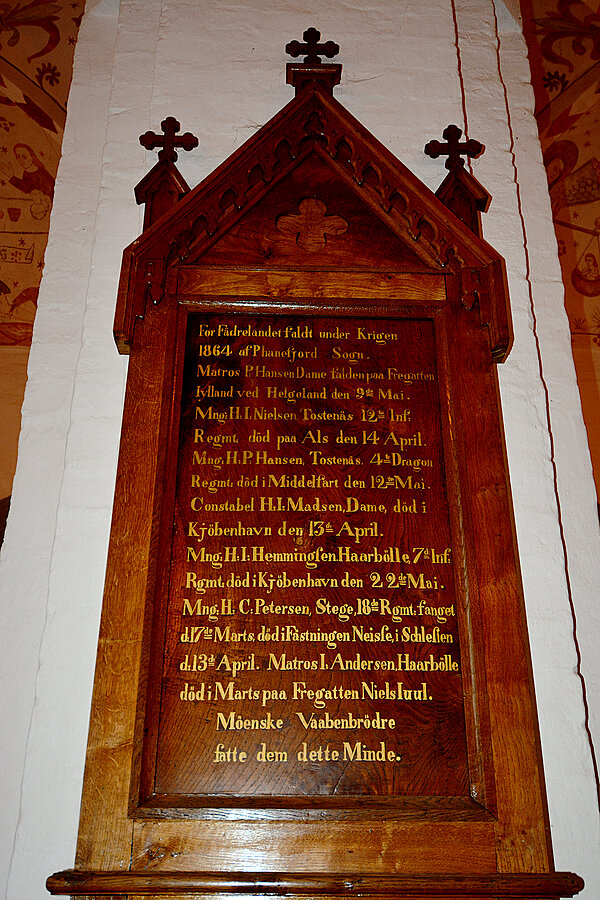 For Fädrelandet faldt under Krigen
1864 af Phanefjord Sogn.
Matros P. Hansen Dame falden paa Fregatten
Jylland ved Helgoland den 9de Mai.
Mng: H.I. Nielsen Tostenäs 12te Inf:
Regmt, död paa Als den 14 April.
Mng: H:P. Hansen, Tostenäs. 4de Dragon
Regmt: död i Middelfart den 12te Mai.
Constabel H.I: Madsen, Dame, död i
Kjöbenhavn den 13de April.
Mng: H:I: Hemmingsen Haarbölle, 7de Inf:
Rgmt, död i Kjöbenhavn den 22de Mai.
Mng: H: C. Petersen, Stege, 18de Rgmt: fanget
d. 17de Marts, död i Fästningen Neisse, i Schlesien
d: 13de April. Matros I. Andersen, Haarbölle
död i Marts paa Fregatten Niels Iuul.
Möenske Vaabenbrödre
satte dem dette Minde.